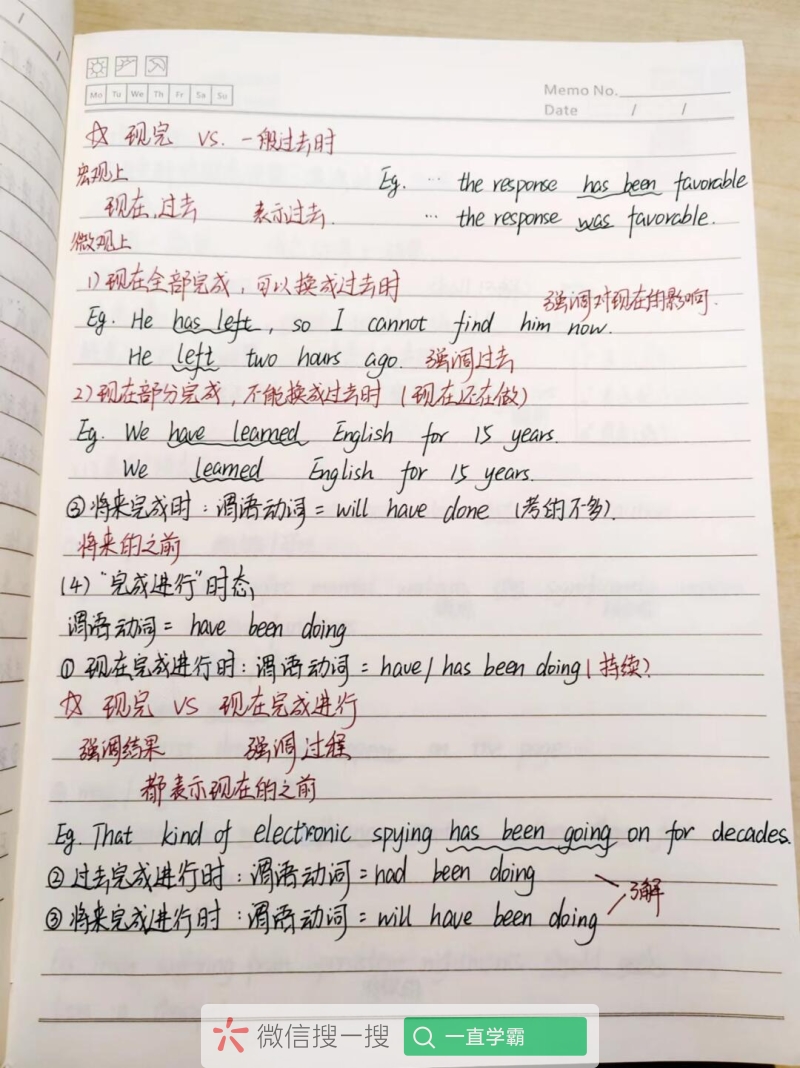 Mo Tu We Th Fr Sa Su
Memo No.
Date / /
☆ 现完 VS. 一般过去时
宏观上
Eg. … the response has been favorable
现在,过去 表示过去.
… the response was favorable.
微观上
1)现在全部完成,可以换成过去时
强调对现在的影响.
Eg. He has left, so I cannot find him now.
He left two hours ago. 强调过去
2)现在部分完成,不能换成过去时(现在还在做)
Eg. We have learned English for 15 years.
We learned English for 15 years.
③将来完成时:谓语动词=will have done (考的不多).
将来的之前
(4)“完成进行”时态
谓语动词= have been doing
① 现在完成进行时:谓语动词= have/has been doing(持续)
☆ 现完 VS 现在完成进行
强调结果 强调过程
都表示现在的之前
Eg. That kind of electronic spying has been going on for decades.
②过去完成进行时:谓语动词=had been doing
了解
③将来完成进行时:谓语动词=will have been doing
微信搜一搜 一直学霸